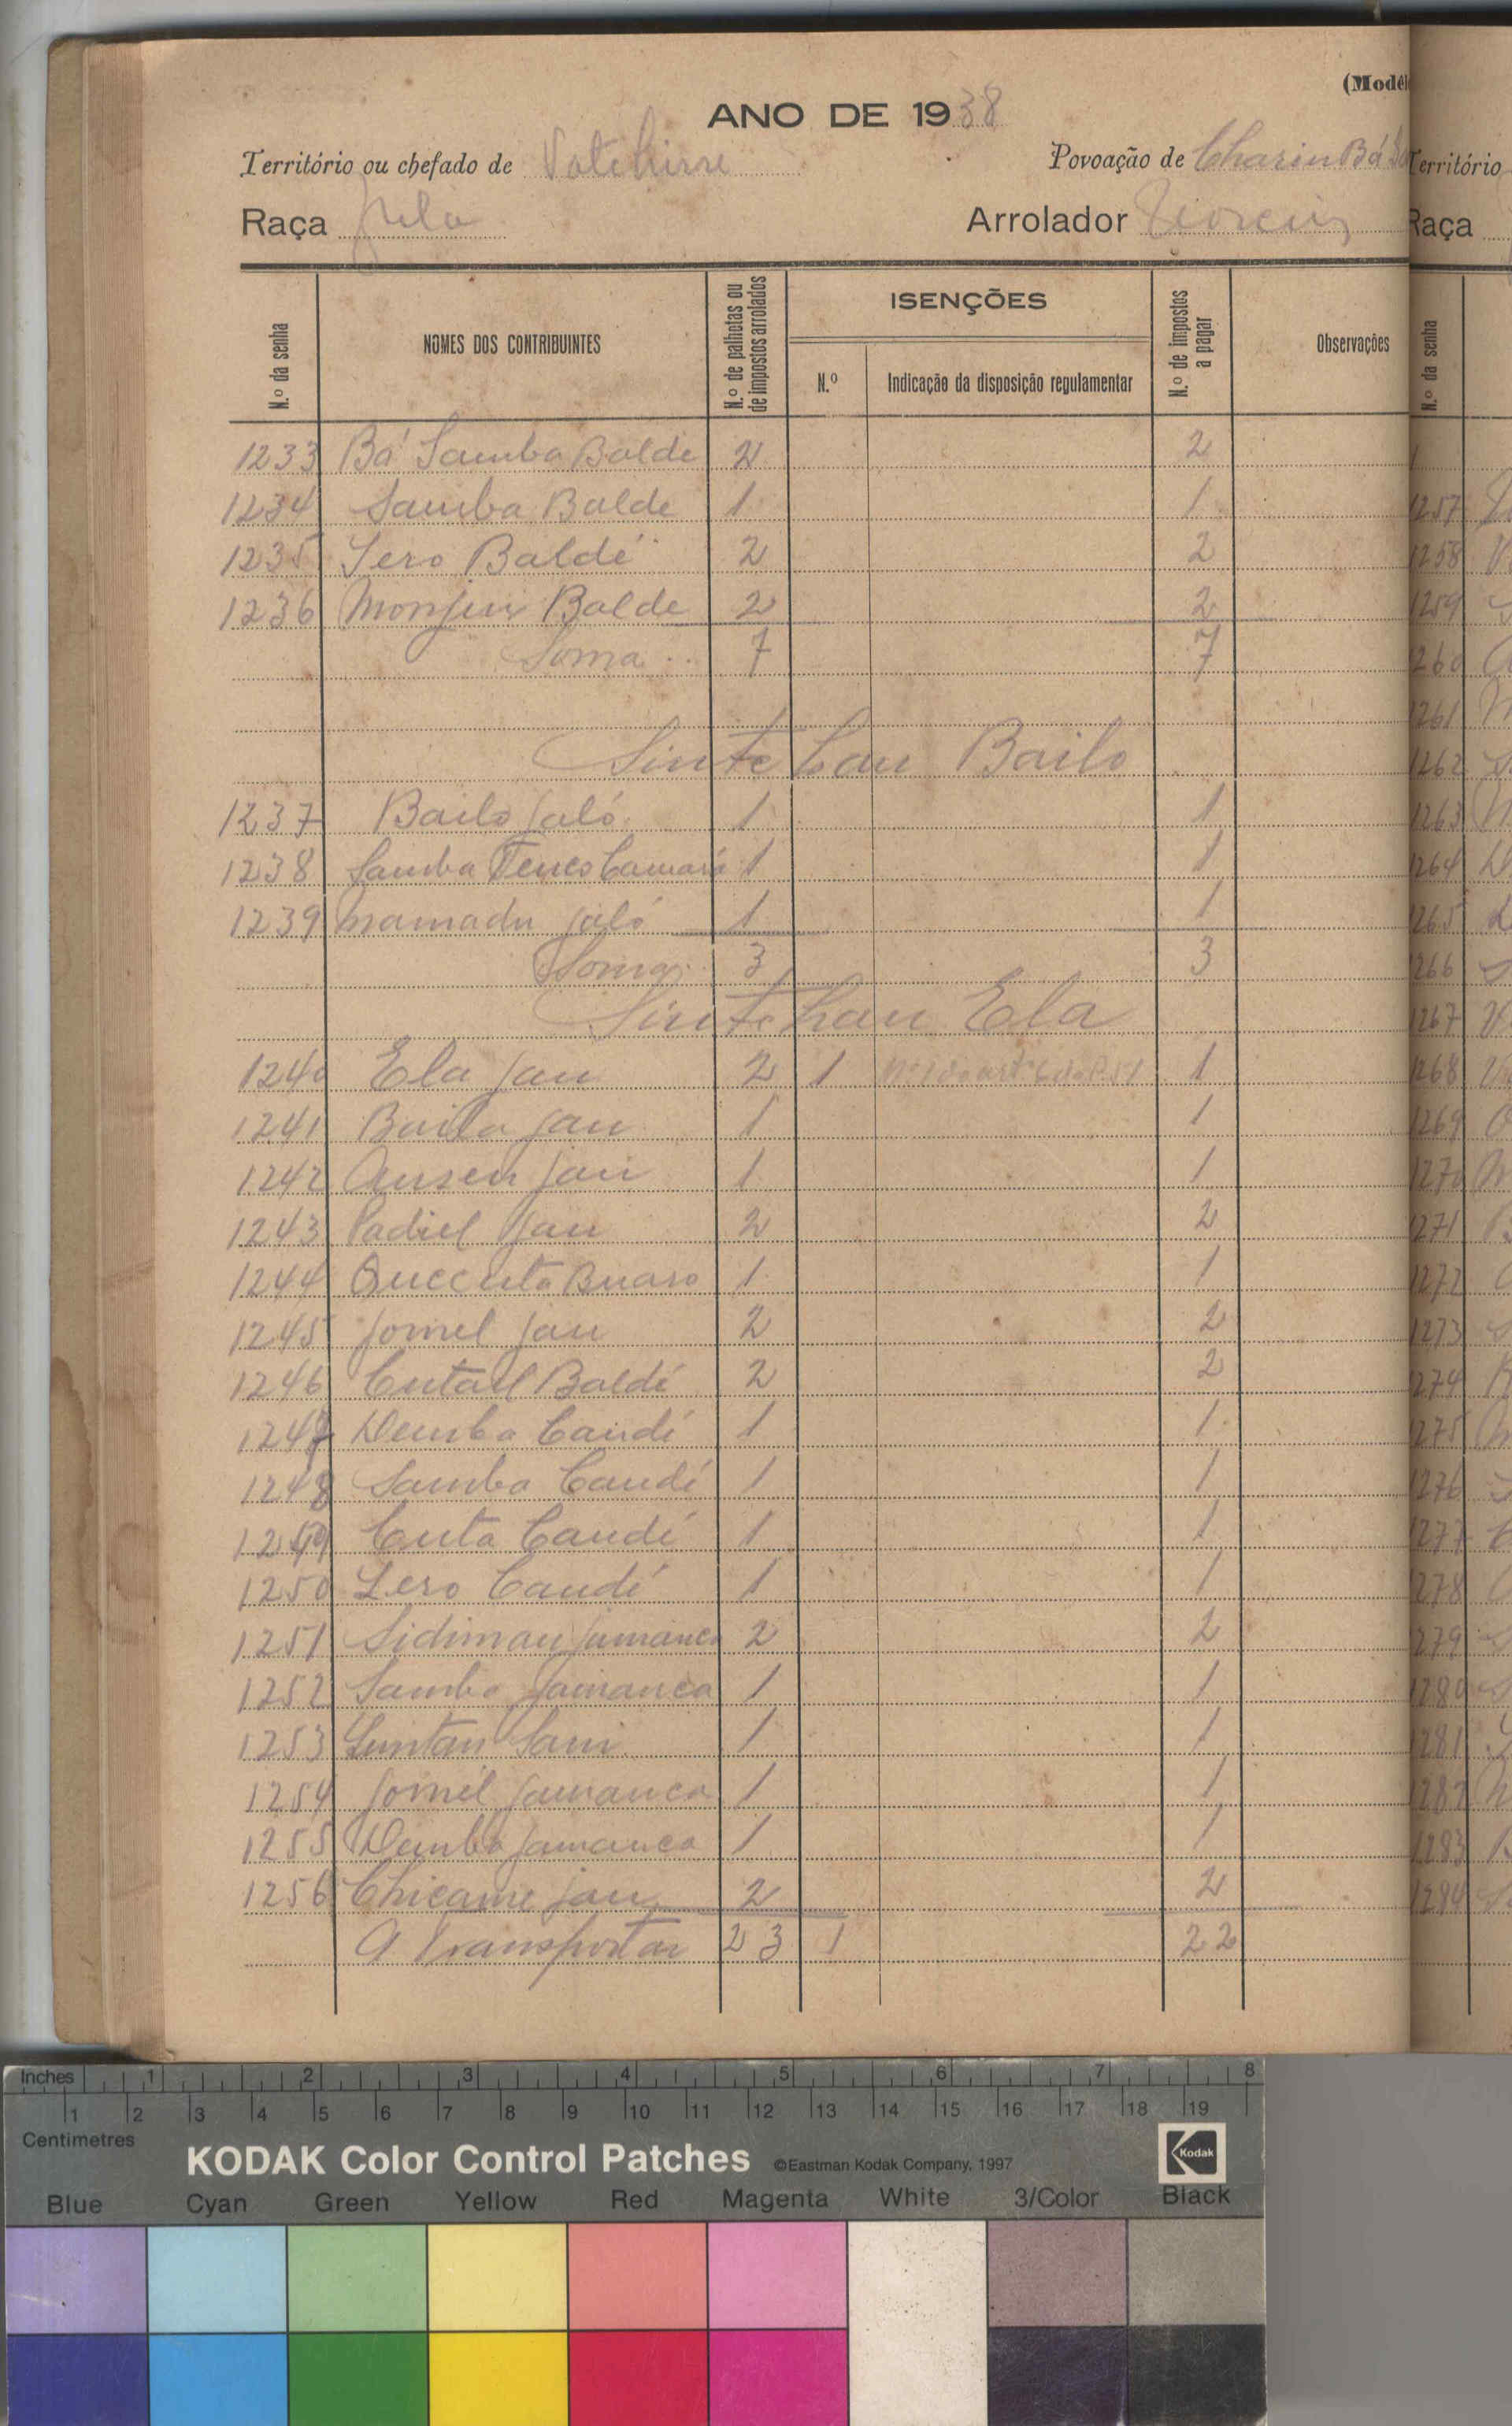 (Modêl
ANO DE 1938
Território ou chefado de
Povoação de Charin Bá
Raça Fula
Arrolador
N.º da senha
NOMES DOS CONTRIBUINTES
N.º de palhotas ou de impostos arrolados
ISENÇÕES
N.º
Indicação da disposição regulamentar
N.º de impostos a pagar
Observações
1233 Bá Samba Balde 2 2
1234 Samba Balde 1 1
1235 Sero Baldé 2 2
1236 Balde 2 2
Soma 7 7
Sintchan Bailo
1237 Bailo Jaló 1 1
1238 Samba Camará 1 1
1239 Mamadu Jaló 1 1
Soma 3 3
Sintchan Ela
1240 Ela Jau 2 1 1
1241 Jau 1 1
1242 Jau 1 1
1243 Padiel Jau 2 2
1244 1 1
1245 Jornel Jau 2 2
1246 Baldé 2 2
1247 Demba Candé 1 1
1248 Samba Candé 1 1
1249 Cuta Candé 1 1
1250 Sero Candé 1 1
1251 Jamanca 2 2
1252 Samba Jamanca 1 1
1253 1 1
1254 Jornel Jamanca 1 1
1255 Demba Jamanca 1 1
1256 Chicame Jau 2 2
A transportar 23 1 22
Território
Raça
N.º da senha
1257
1258
1259
1260
1261
1262
1263
1264
1265
1266
1267
1268
1269
1270
1271
1272
1273
1274
1275
1276
1277
1278
1279
1280
1281
1282
1283
1284
Inches 1 2 3 4 5 6 7 8
1 2 3 4 5 6 7 8 9 10 11 12 13 14 15 16 17 18 19
Centimetres
KODAK Color Control Patches ©Eastman Kodak Company, 1997 Kodak
Blue Cyan Green Yellow Red Magenta White 3/Color Black